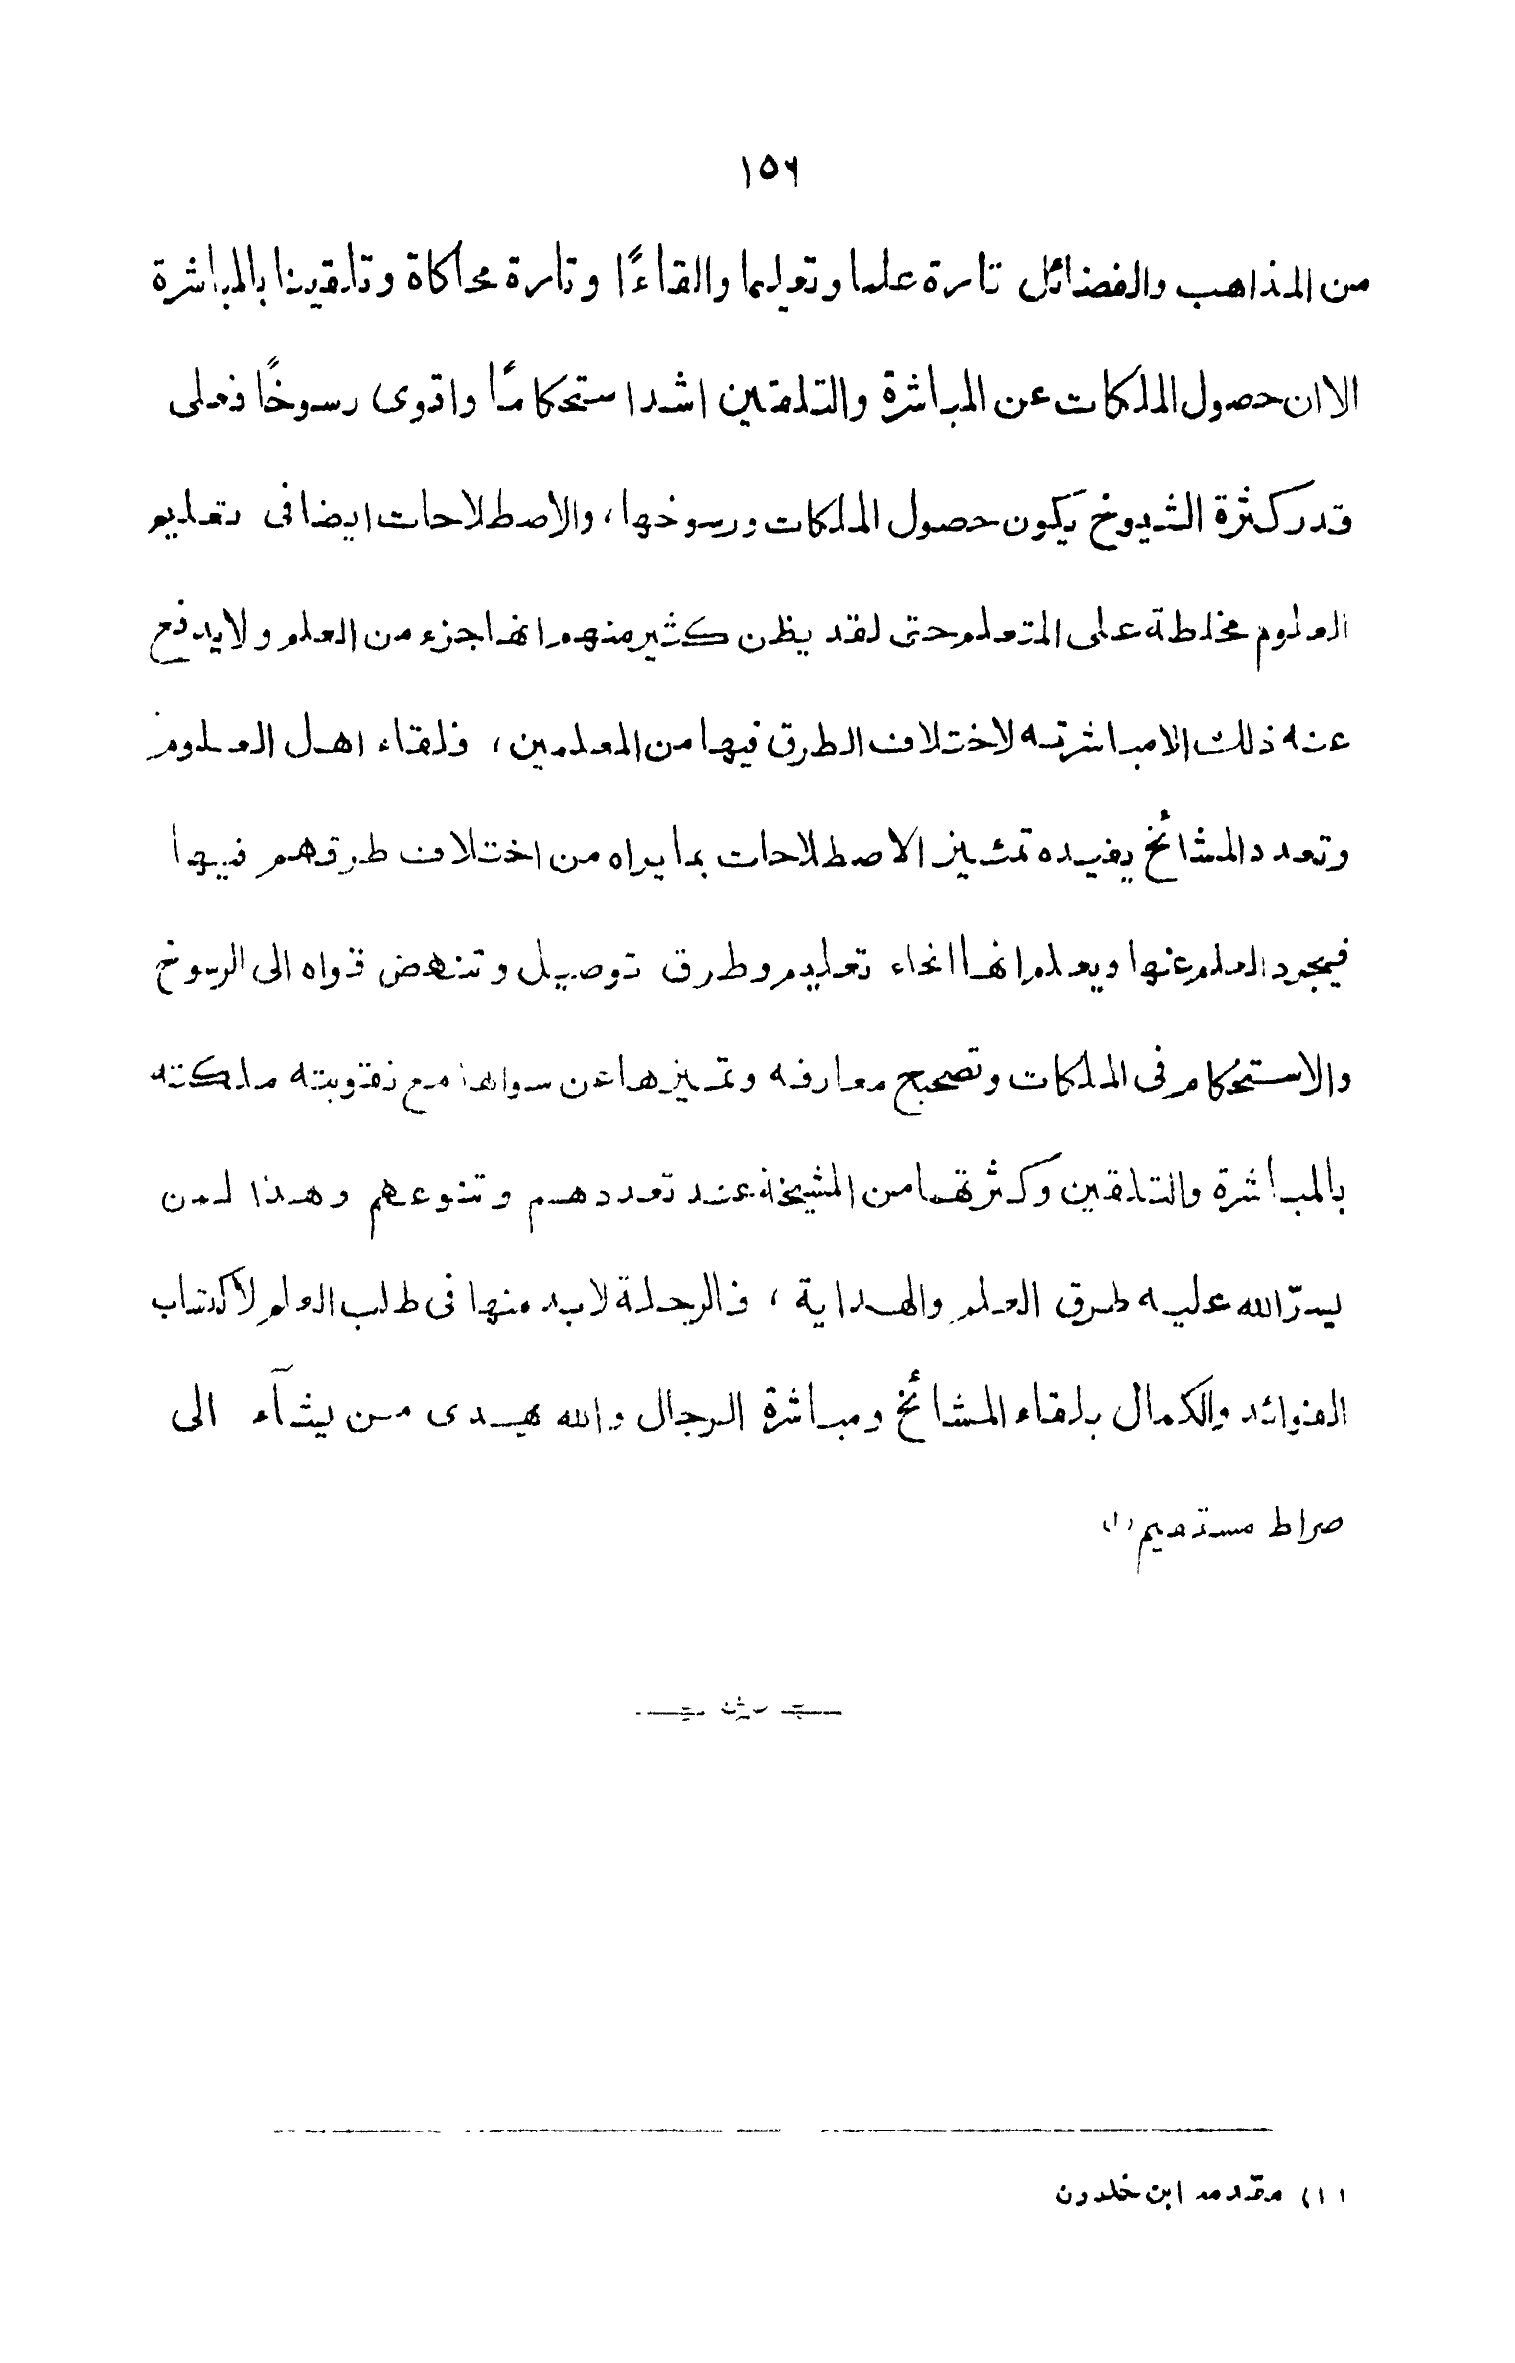 ١٥٦
من المذاهب والفضائل تارة علما وتعليما والقاءًا وتارة محاكاة وتلقينا بالمباشرة
الا ان حصول الملكات عن المباشرة والتلقين اشد استحكامًا واقوى رسوخًا فعلى
قدر كثرة الشيوخ يكون حصول الملكات ورسوخها، والاصطلاحات ايضا فى تعليم
العلوم مخلطة على المتعلم حتى لقد يظن كثير منهم انها جزء من العلم ولا يدفع
عنه ذلك الا مباشرته لاختلاف الطرق فيها من المعلمين، فلقاء اهل العلوم
وتعدد المشائخ يفيده تمئيز الاصطلاحات بما يراه من اختلاف طرقهم فيها
فيجرد العلم عنها ويعلم انها انحاء تعليم وطرق توصيل وتنهض قواه الى الرسوخ
والاستحكام فى الملكات وتصحيح معارفه وتميزها عن سواها مع تقويته ملكته
بالمباشرة والتلقين وكثرتهما من المشيخة عند تعددهم وتنوعهم وهذا لمن
يسرّ الله عليه طرق العلم والهداية، فالرحلة لابد منها فى طلب العلم لاكتساب
الفوائد والكمال بلقاء المشائخ ومباشرة الرجال والله يهدى من يشآء الى
صراط مستقيم (١)
(١) مقدمہ ابن خلدون